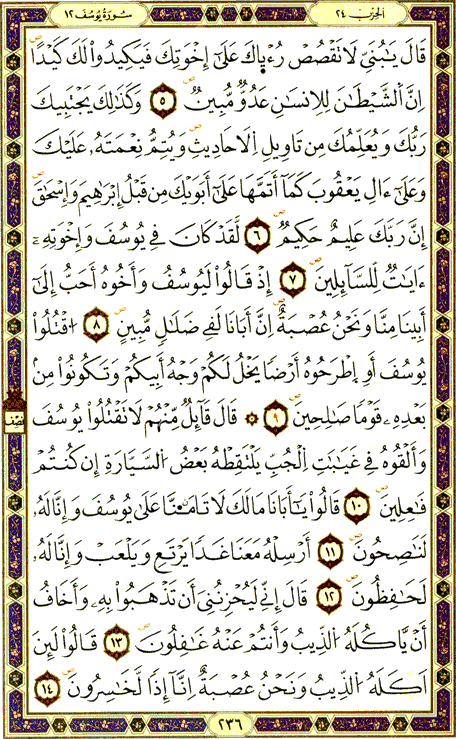 الحزب ٢٤
سُورَةُ يُوسُفَ ١٢
قَالَ يَٰبُنَيِّ لَا تَقْصُصْ رُءْيَاكَ عَلَىٰ إِخْوَتِكَ فَيَكِيدُواْ لَكَ كَيْدًا
اِنَّ اَ۬لشَّيْطَٰنَ لِلِانسَٰنِ عَدُوٌّ مُّبِينٌ ٥ وَكَذَٰلِكَ يَجْتَبِيكَ
رَبُّكَ وَيُعَلِّمُكَ مِن تَاوِيلِ اِ۬لَاحَادِيثِ وَيُتِمُّ نِعْمَتَهُۥ عَلَيْكَ
وَعَلَىٰٓ ءَالِ يَعْقُوبَ كَمَآ أَتَمَّهَا عَلَىٰٓ أَبَوَيْكَ مِن قَبْلُ إِبْرَٰهِيمَ وَإِسْحَٰقَ
إِنَّ رَبَّكَ عَلِيمٌ حَكِيمٌ ٦ لَّقَدْ كَانَ فِي يُوسُفَ وَإِخْوَتِهِۦٓ
ءَايَٰتٌ لِّلسَّآئِلِينَ ٧ إِذْ قَالُواْ لَيُوسُفُ وَأَخُوهُ أَحَبُّ إِلَىٰٓ
أَبِينَا مِنَّا وَنَحْنُ عُصْبَةٌ اِنَّ أَبَانَا لَفِي ضَلَٰلٍ مُّبِينٍ ٨ اُ۟قْتُلُواْ
يُوسُفَ أَوِ اِ۪طْرَحُوهُ أَرْضًا يَخْلُ لَكُمْ وَجْهُ أَبِيكُمْ وَتَكُونُواْ مِنۢ
بَعْدِهِۦ قَوْمًا صَٰلِحِينَ ٩ ۞ قَالَ قَآئِلٌ مِّنْهُمْ لَا تَقْتُلُواْ يُوسُفَ
وَأَلْقُوهُ فِي غَيَٰبَٰتِ اِ۬لْجُبِّ يَلْتَقِطْهُ بَعْضُ اُ۬لسَّيَّارَةِ إِن كُنتُمْ
فَٰعِلِينَ ١٠ قَالُواْ يَٰٓأَبَانَا مَالَكَ لَا تَامَ۬نَّا عَلَىٰ يُوسُفَ وَإِنَّا لَهُۥ
لَنَٰصِحُونَ ١١ أَرْسِلْهُ مَعَنَا غَدًا يَرْتَعِ وَيَلْعَبْ وَإِنَّا لَهُۥ
لَحَٰفِظُونَ ١٢ قَالَ إِنِّي لَيُحْزِنُنِيَ أَن تَذْهَبُواْ بِهِۦ وَأَخَافُ
أَنْ يَّاكُلَهُ اُ۬لذِّيبُ وَأَنتُمْ عَنْهُ غَٰفِلُونَ ١٣ قَالُواْ لَئِنَ
اَكَلَهُ اُ۬لذِّيبُ وَنَحْنُ عُصْبَةٌ اِنَّآ إِذًا لَّخَٰسِرُونَ ١٤
٢٣٦